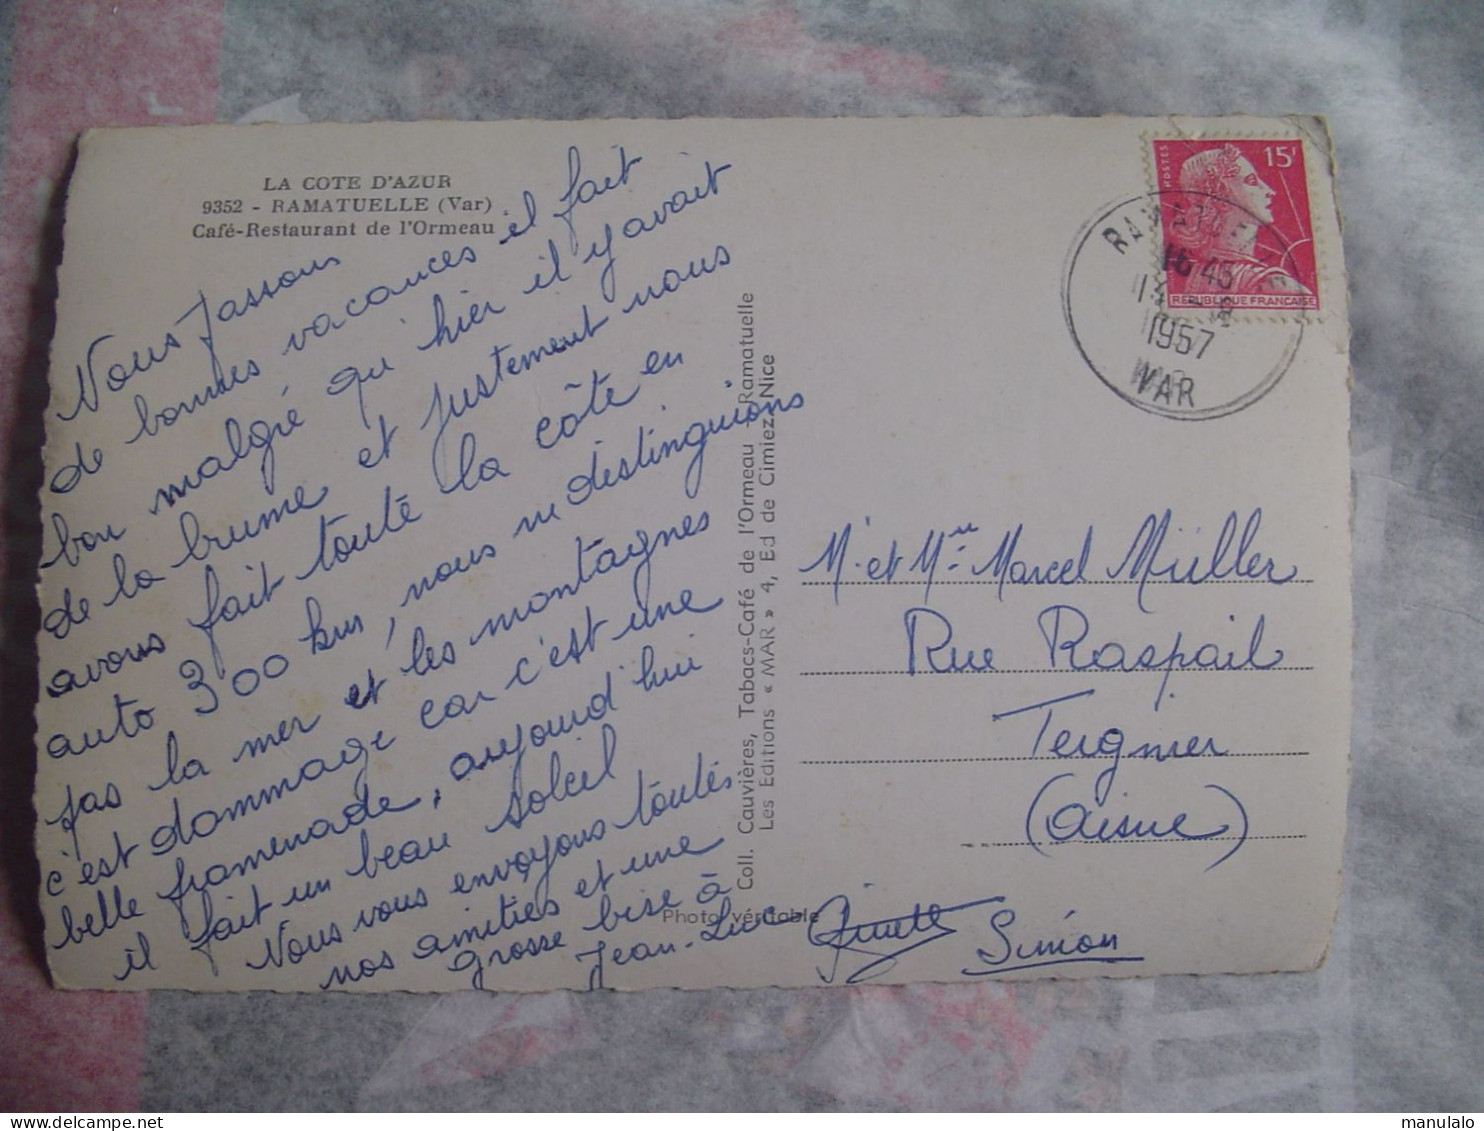 LA COTE D'AZUR
9352 - RAMATUELLE (Var)
Café-Restaurant de l'Ormeau
Nous passons
de bonnes vacances il fait
bon malgré qu'hier il y avait
de la brume et justement nous
avons fait toute la côte en
auto 300 km, nous ne distinguions
pas la mer et les montagnes
c'est dommage car c'est une
belle promenade, aujourd'hui
il fait un beau soleil
Nous vous envoyons toutes
nos amitiés et une
grosse bise à
Jean-Luc
Ginette
Simon
Coll. Cauvières, Tabacs-Café de l'Ormeau - Ramatuelle
Les Editions « MAR » 4, Ed de Cimiez, Nice
Photo véritable
POSTES
15F
REPUBLIQUE FRANCAISE
RAMATUELLE
16 45
1957
VAR
Mr et Mme Marcel Müller
Rue Raspail
Tergnier
(Aisne)
r
manulalo